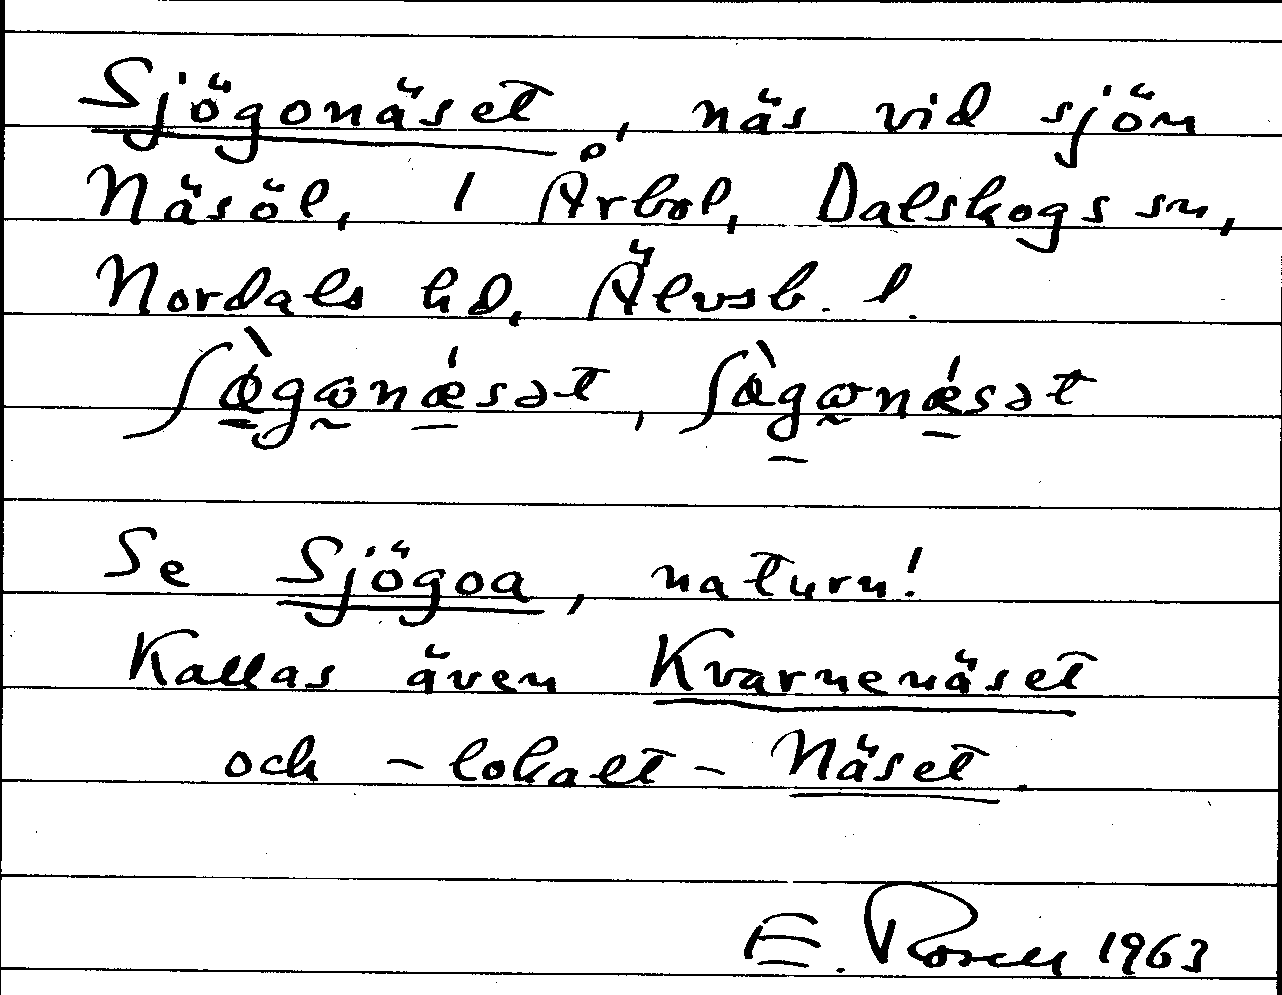 Sjögonäset, näs vid sjön
Näsöl, 1 Årbol, Dalskogs sn,
Nordals hd, Älvsb. l.
Se Sjögoa, naturn!
Kallas även Kvarnenäset
och - lokalt - Näset.
E. Rosell 1963